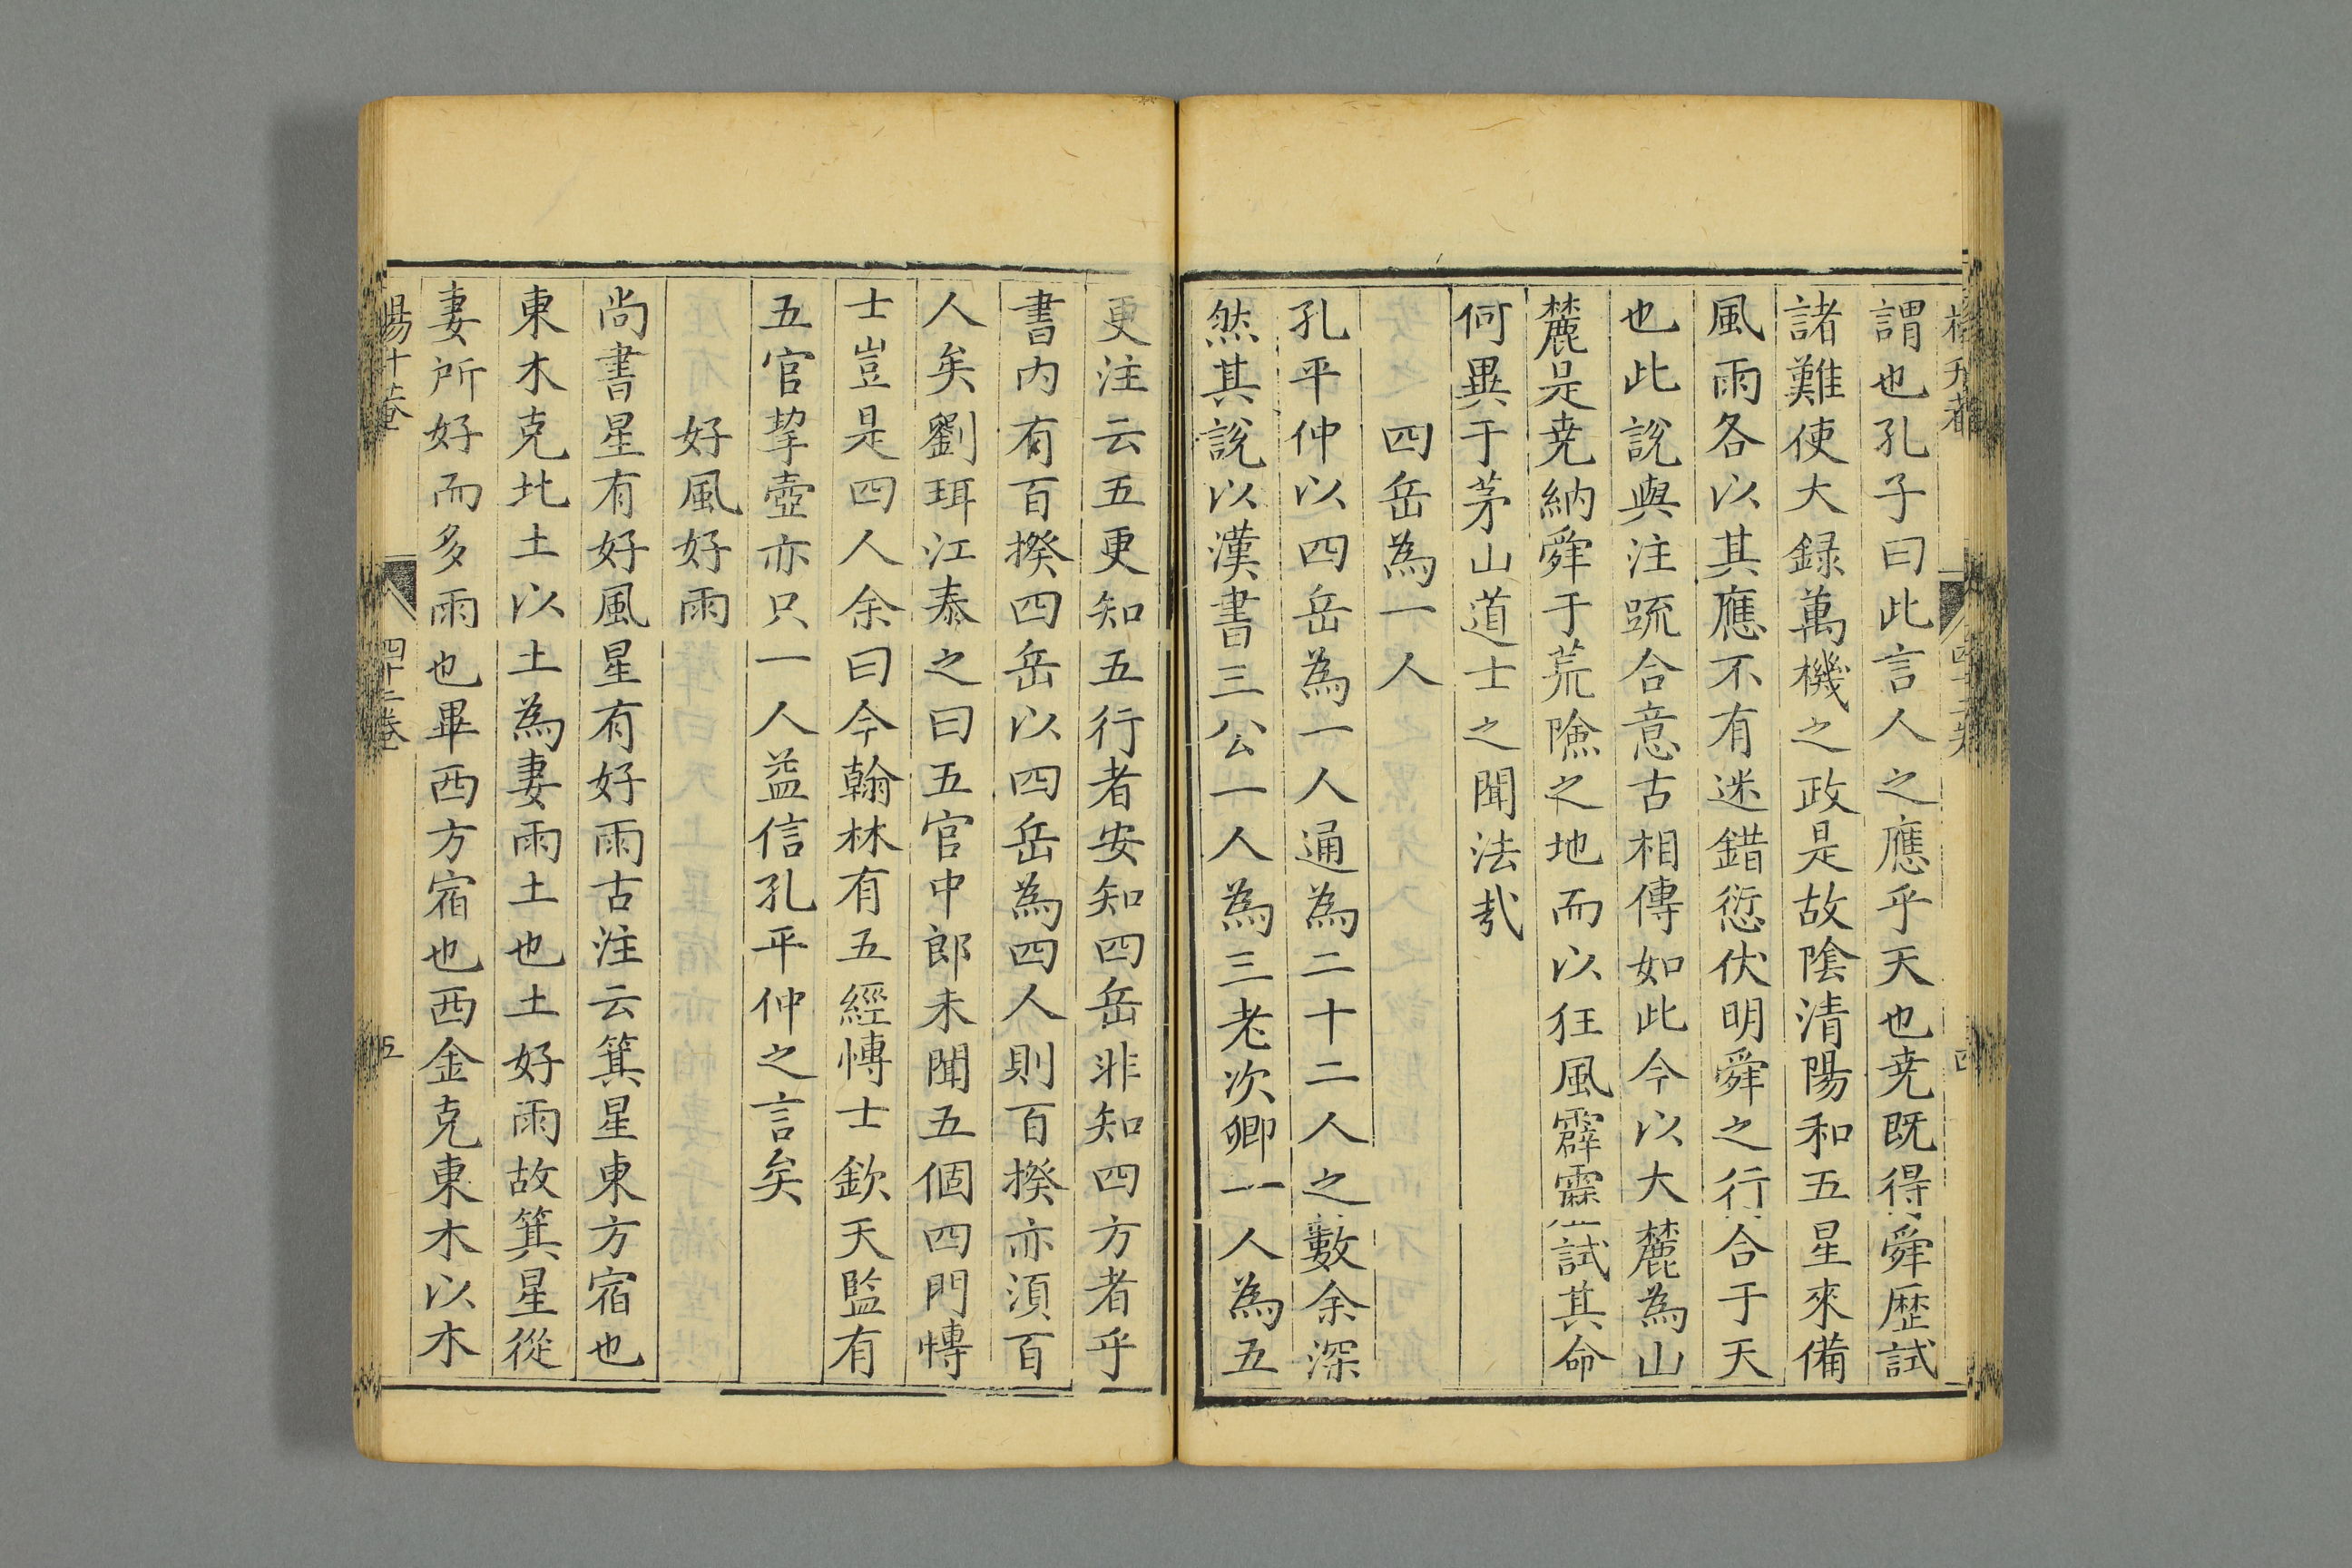 謂也孔子曰此言人之應乎天也尭既得舜歴試
諸難使大録萬機之政是故隂清陽和五星來備
風雨各以其應不有迷錯愆伏明舜之行合于天
也此說與注䟽合意古相傳如此今以大麓為山
麓是尭納舜于荒險之地而以狂風霹靂試其命
何異于茅山道士之聞法㢤
四岳為一人
孔平仲以四岳為一人通為二十二人之數余深
然其說以漢書三公一人為三老次卿一人為五
更注云五更知五行者安知四岳非知四方者乎
書内有百揆四岳以四岳為四人則百揆亦須百
人矣劉珥江泰之曰五官中郎未聞五個四門愽
士豈是四人余曰今翰林有五經愽士欽天監有
五官挈壺亦只一人益信孔平仲之言矣
好風好雨
尚書星有好風星有好雨古注云箕星東方宿也
東木克圠土以土為妻雨土也土好雨故箕星從
妻所好而多雨也畢西方宿也西金克東木以木
四十三卷
五